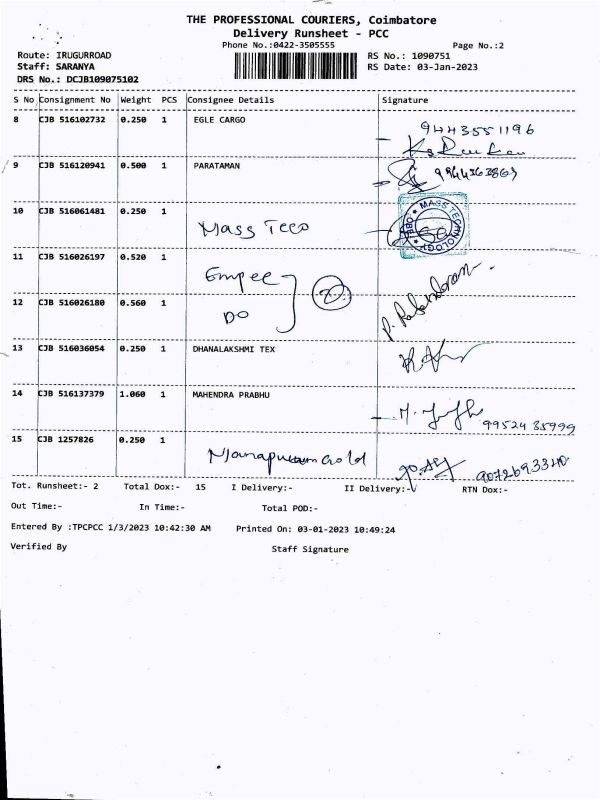 THE PROFESSIONAL COURIERS, Coimbatore
Delivery Runsheet - PCC
Phone No.:0422-3505555
Page No.:2
Route: IRUGURROAD
RS No.: 1090751
Staff: SARANYA
RS Date: 03-Jan-2023
DRS No.: DCJB109075102
S No Consignment No Weight PCS Consignee Details Signature
8 CJB 516102732 0.250 1 EGLE CARGO
9443551196
9 CJB 516120941 0.500 1 PARATAMAN
10 CJB 516061481 0.250 1
Mass Tecc
MASS TECHNOLOGY
11 CJB 516026197 0.520 1
Empee
2
12 CJB 516026180 0.560 1
DO
13 CJB 516036054 0.250 1 DHANALAKSHMI TEX
14 CJB 516137379 1.060 1 MAHENDRA PRABHU
99524 85999
15 CJB 1257826 0.250 1
Manapuram Gold
Tot. Runsheet:- 2 Total Dox:- 15 I Delivery:- II Delivery:- RTN Dox:-
Out Time:- In Time:- Total POD:-
Entered By :TPCPCC 1/3/2023 10:42:30 AM Printed On: 03-01-2023 10:49:24
Verified By Staff Signature